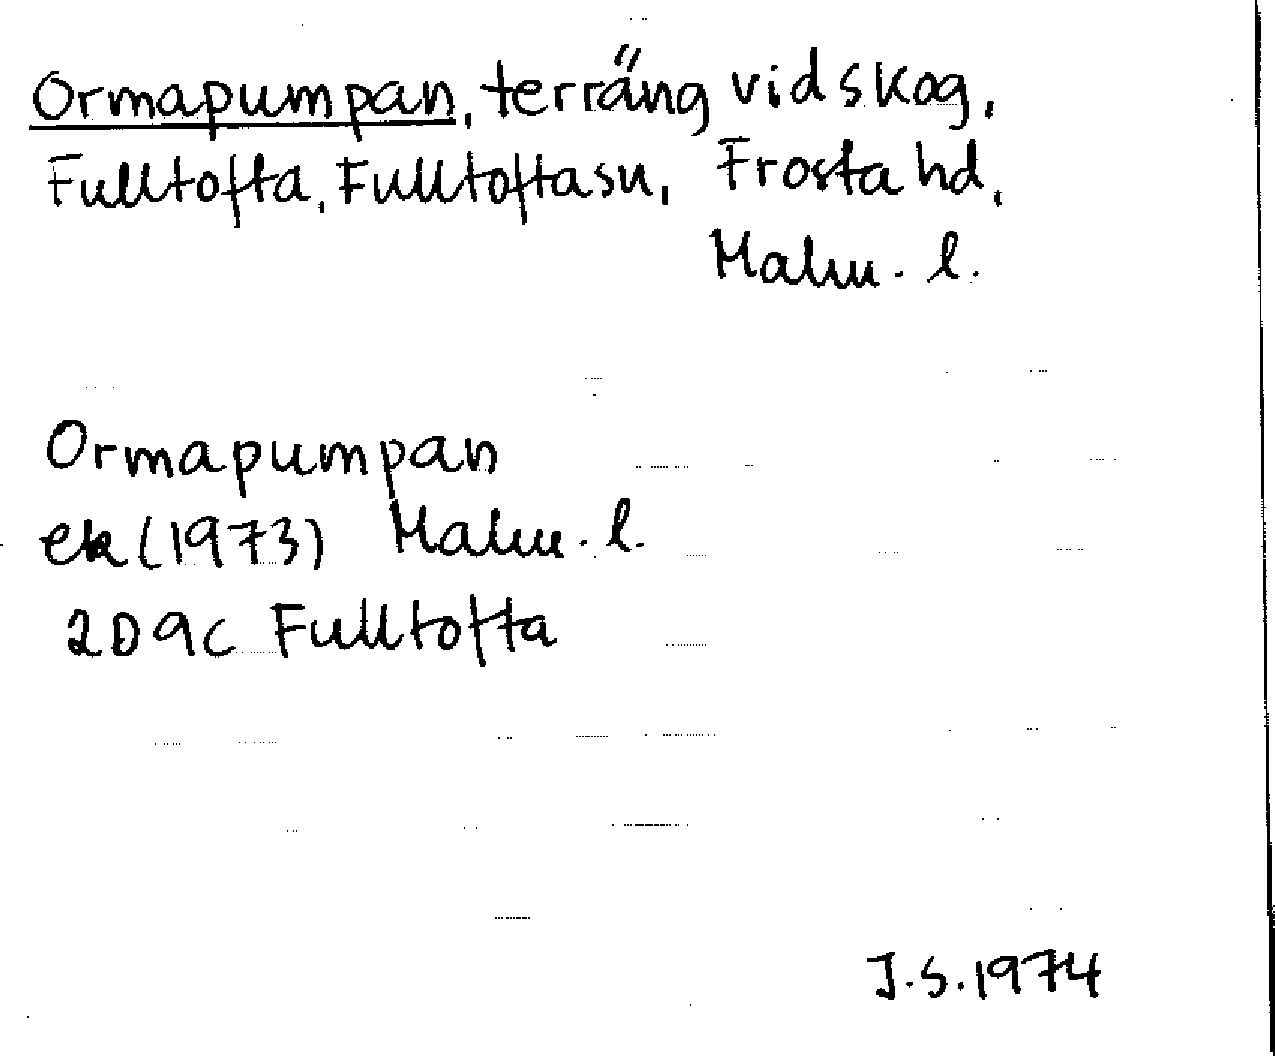 Ormapumpan, terräng vid skog,
Fulltofta, Fulltofta sn, Frosta hd,
Malm. l.
Ormapumpan
ek (1973) Malm. l.
2D 9c Fulltofta
J.S. 1974